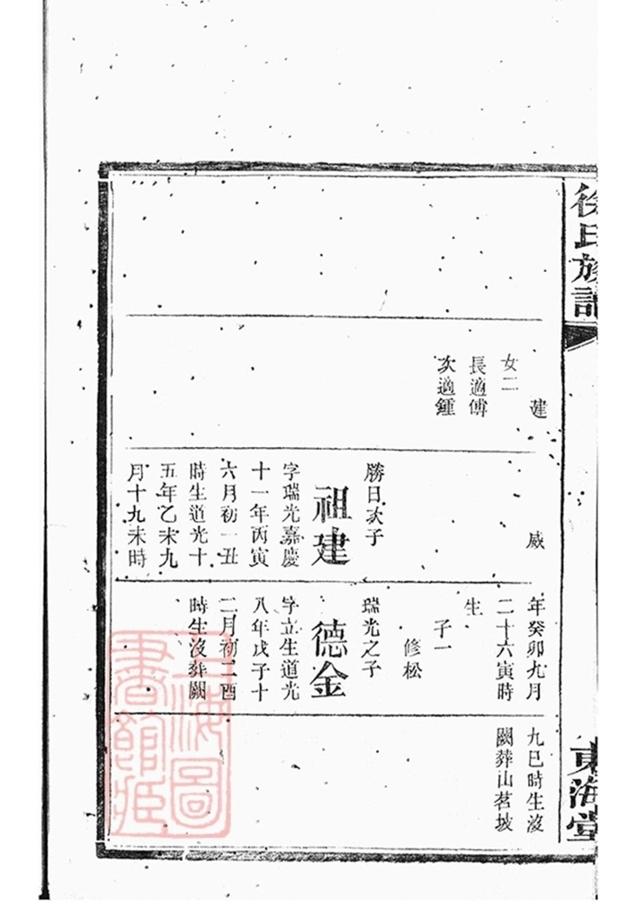 徐氏族譜
東海堂
建
女二
長適傅
次適鍾
威
勝日次子
祖建
字瑞光嘉慶
十一年丙寅
六月初一丑
時生道光十
五年乙未九
月十九未時
年癸卯九月
二十六寅時
生
子一
修松
瑞光之子
德金
字立生道光
八年戊子十
二月初二酉
時生沒葬闕
九巳時生沒
闕葬山茗坡
上海圖
書館藏